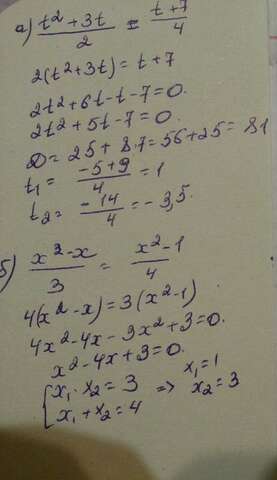 а) (t² + 3t)/2 = (t + 7)/4
2(t² + 3t) = t + 7
2t² + 6t - t - 7 = 0.
2t² + 5t - 7 = 0.
D = 25 + 8·7 = 56 + 25 = 81
t₁ = (-5 + 9)/4 = 1
t₂ = -14/4 = -3,5.
б) (x² - x)/3 = (x² - 1)/4
4(x² - x) = 3(x² - 1)
4x² - 4x - 3x² + 3 = 0.
x² - 4x + 3 = 0.
{ x₁ · x₂ = 3 => x₁ = 1
x₁ + x₂ = 4 x₂ = 3